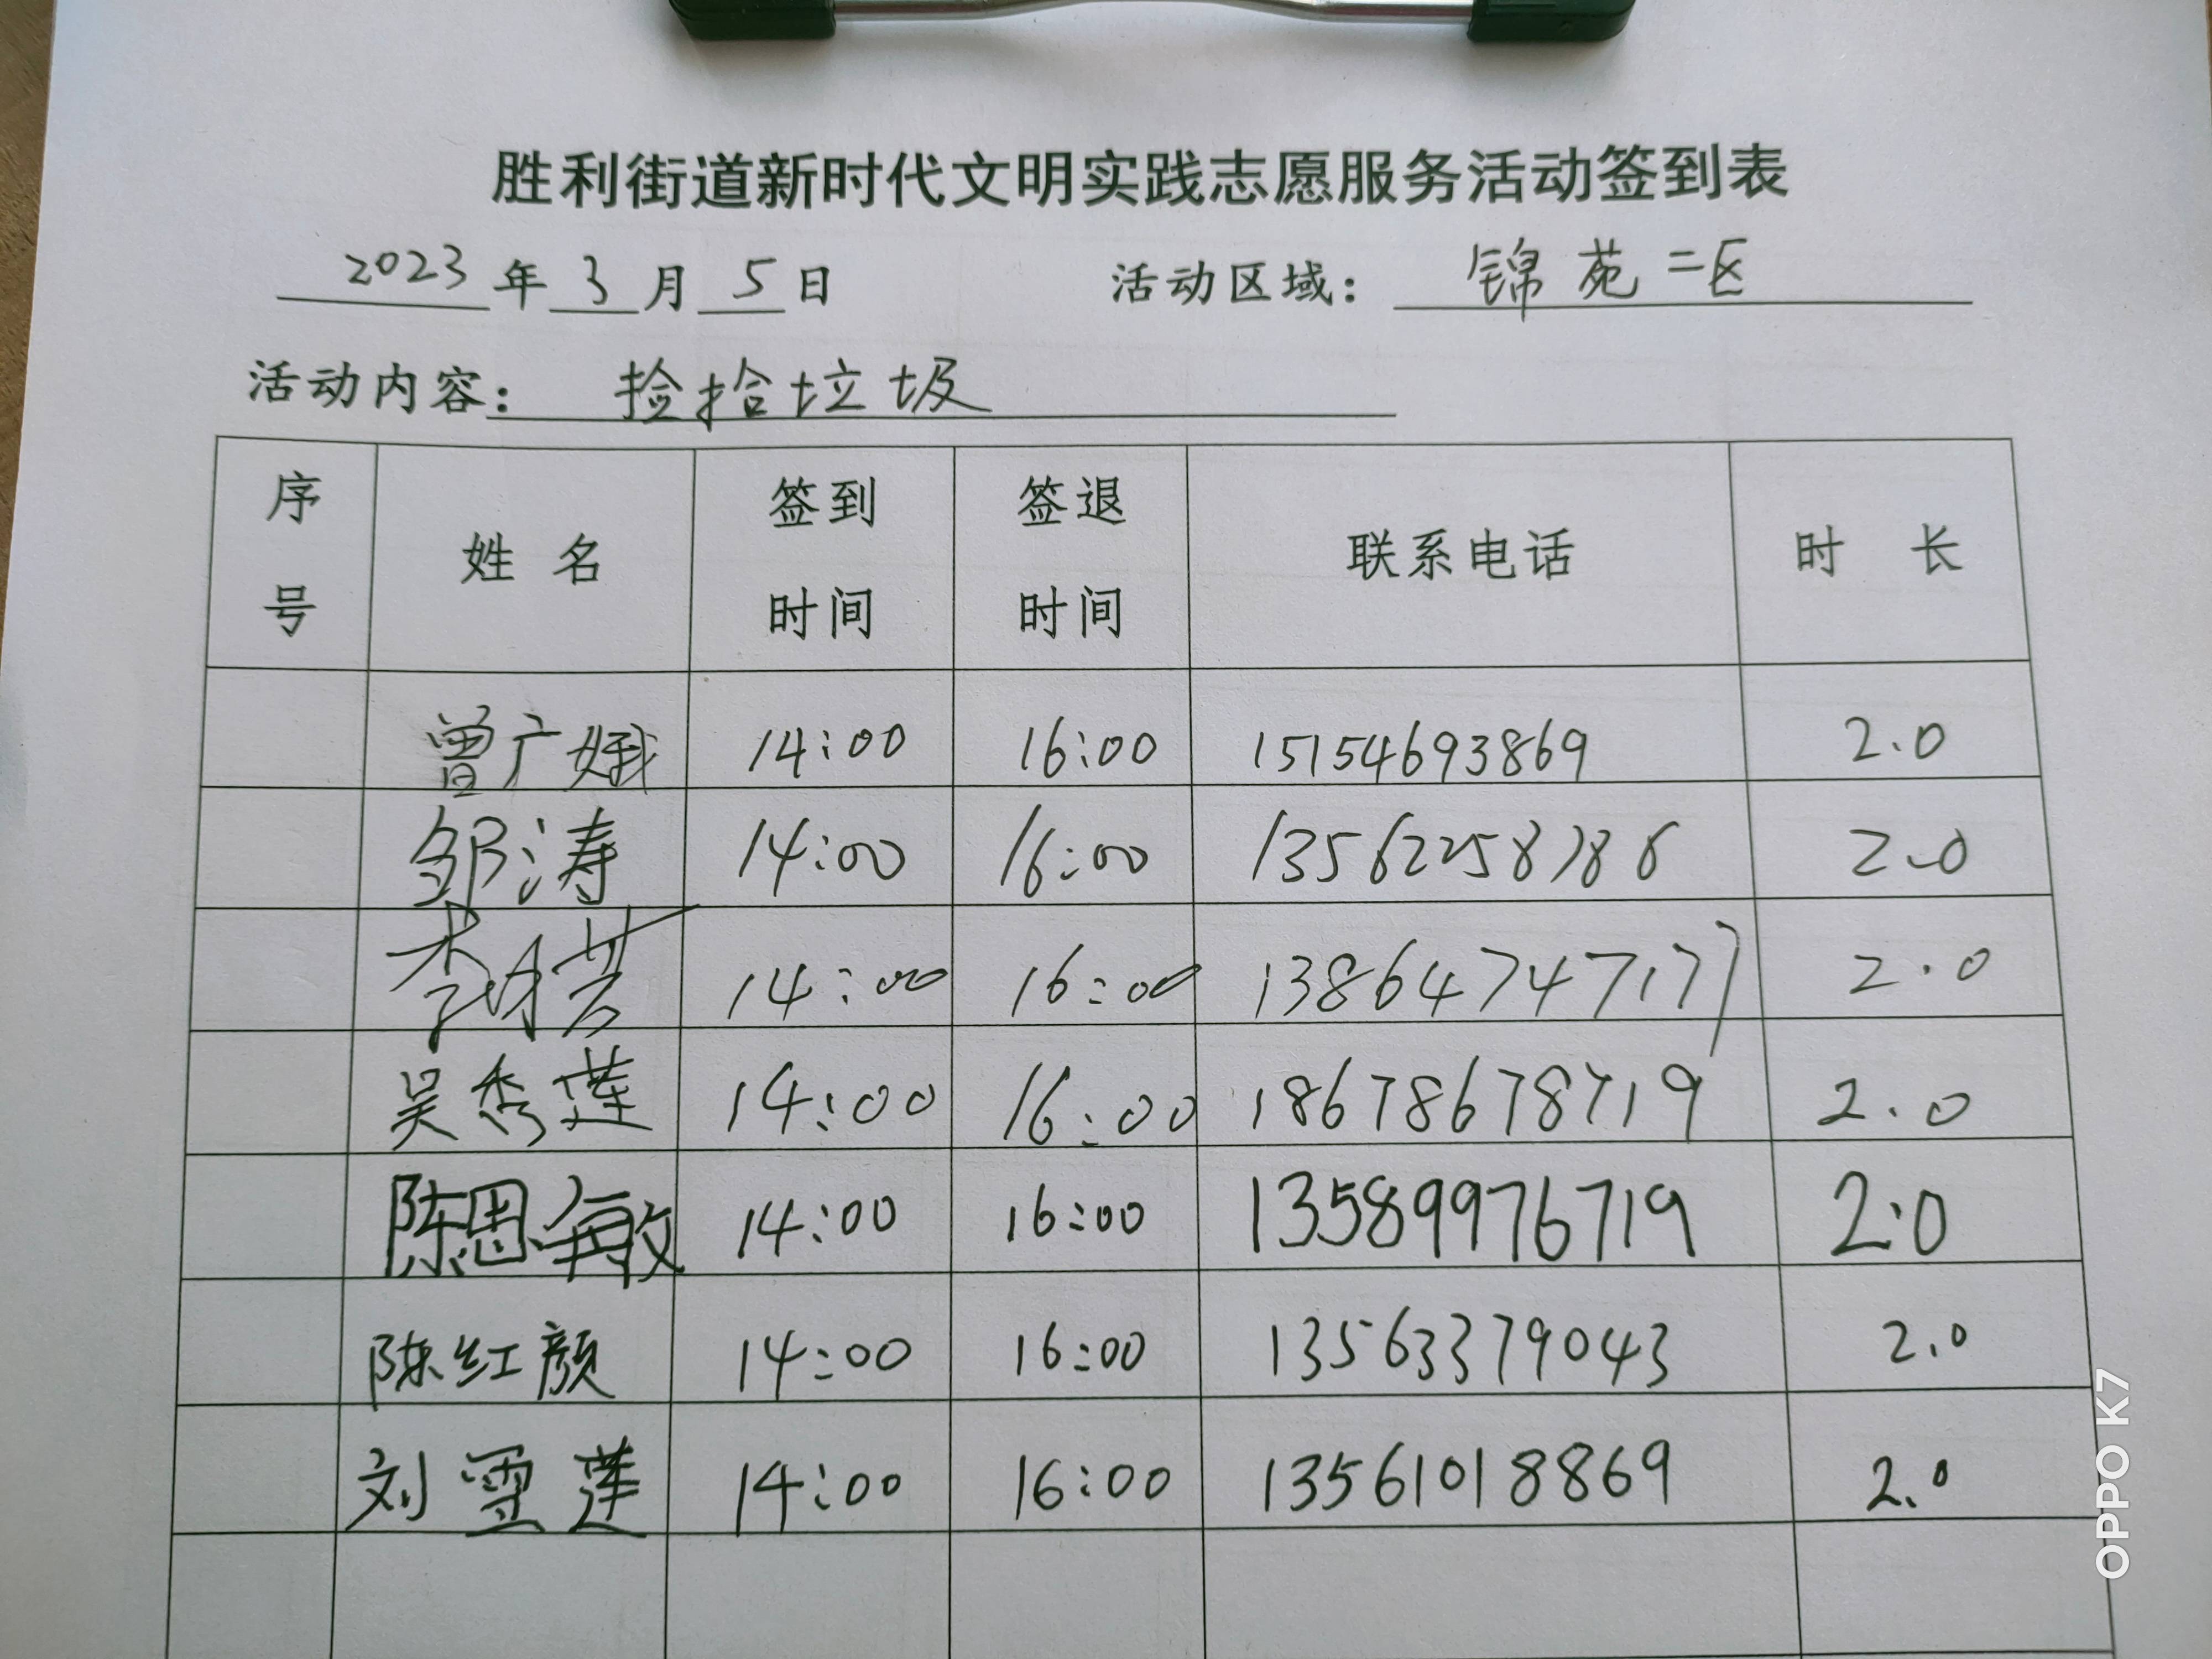 胜利街道新时代文明实践志愿服务活动签到表
2023 年 3 月 5 日 活动区域： 锦苑二区
活动内容： 捡拾垃圾
序号 姓名 签到时间 签退时间 联系电话 时长
曾广娥 14:00 16:00 15154693869 2.0
邹涛 14:00 16:00 2.0
14:00 16:00 13864747177 2.0
吴秀莲 14:00 16:00 18678678719 2.0
陈恩敏 14:00 16:00 13589976719 2.0
陈红颜 14:00 16:00 13563379043 2.0
刘雪莲 14:00 16:00 13561018869 2.0
OPPO K7